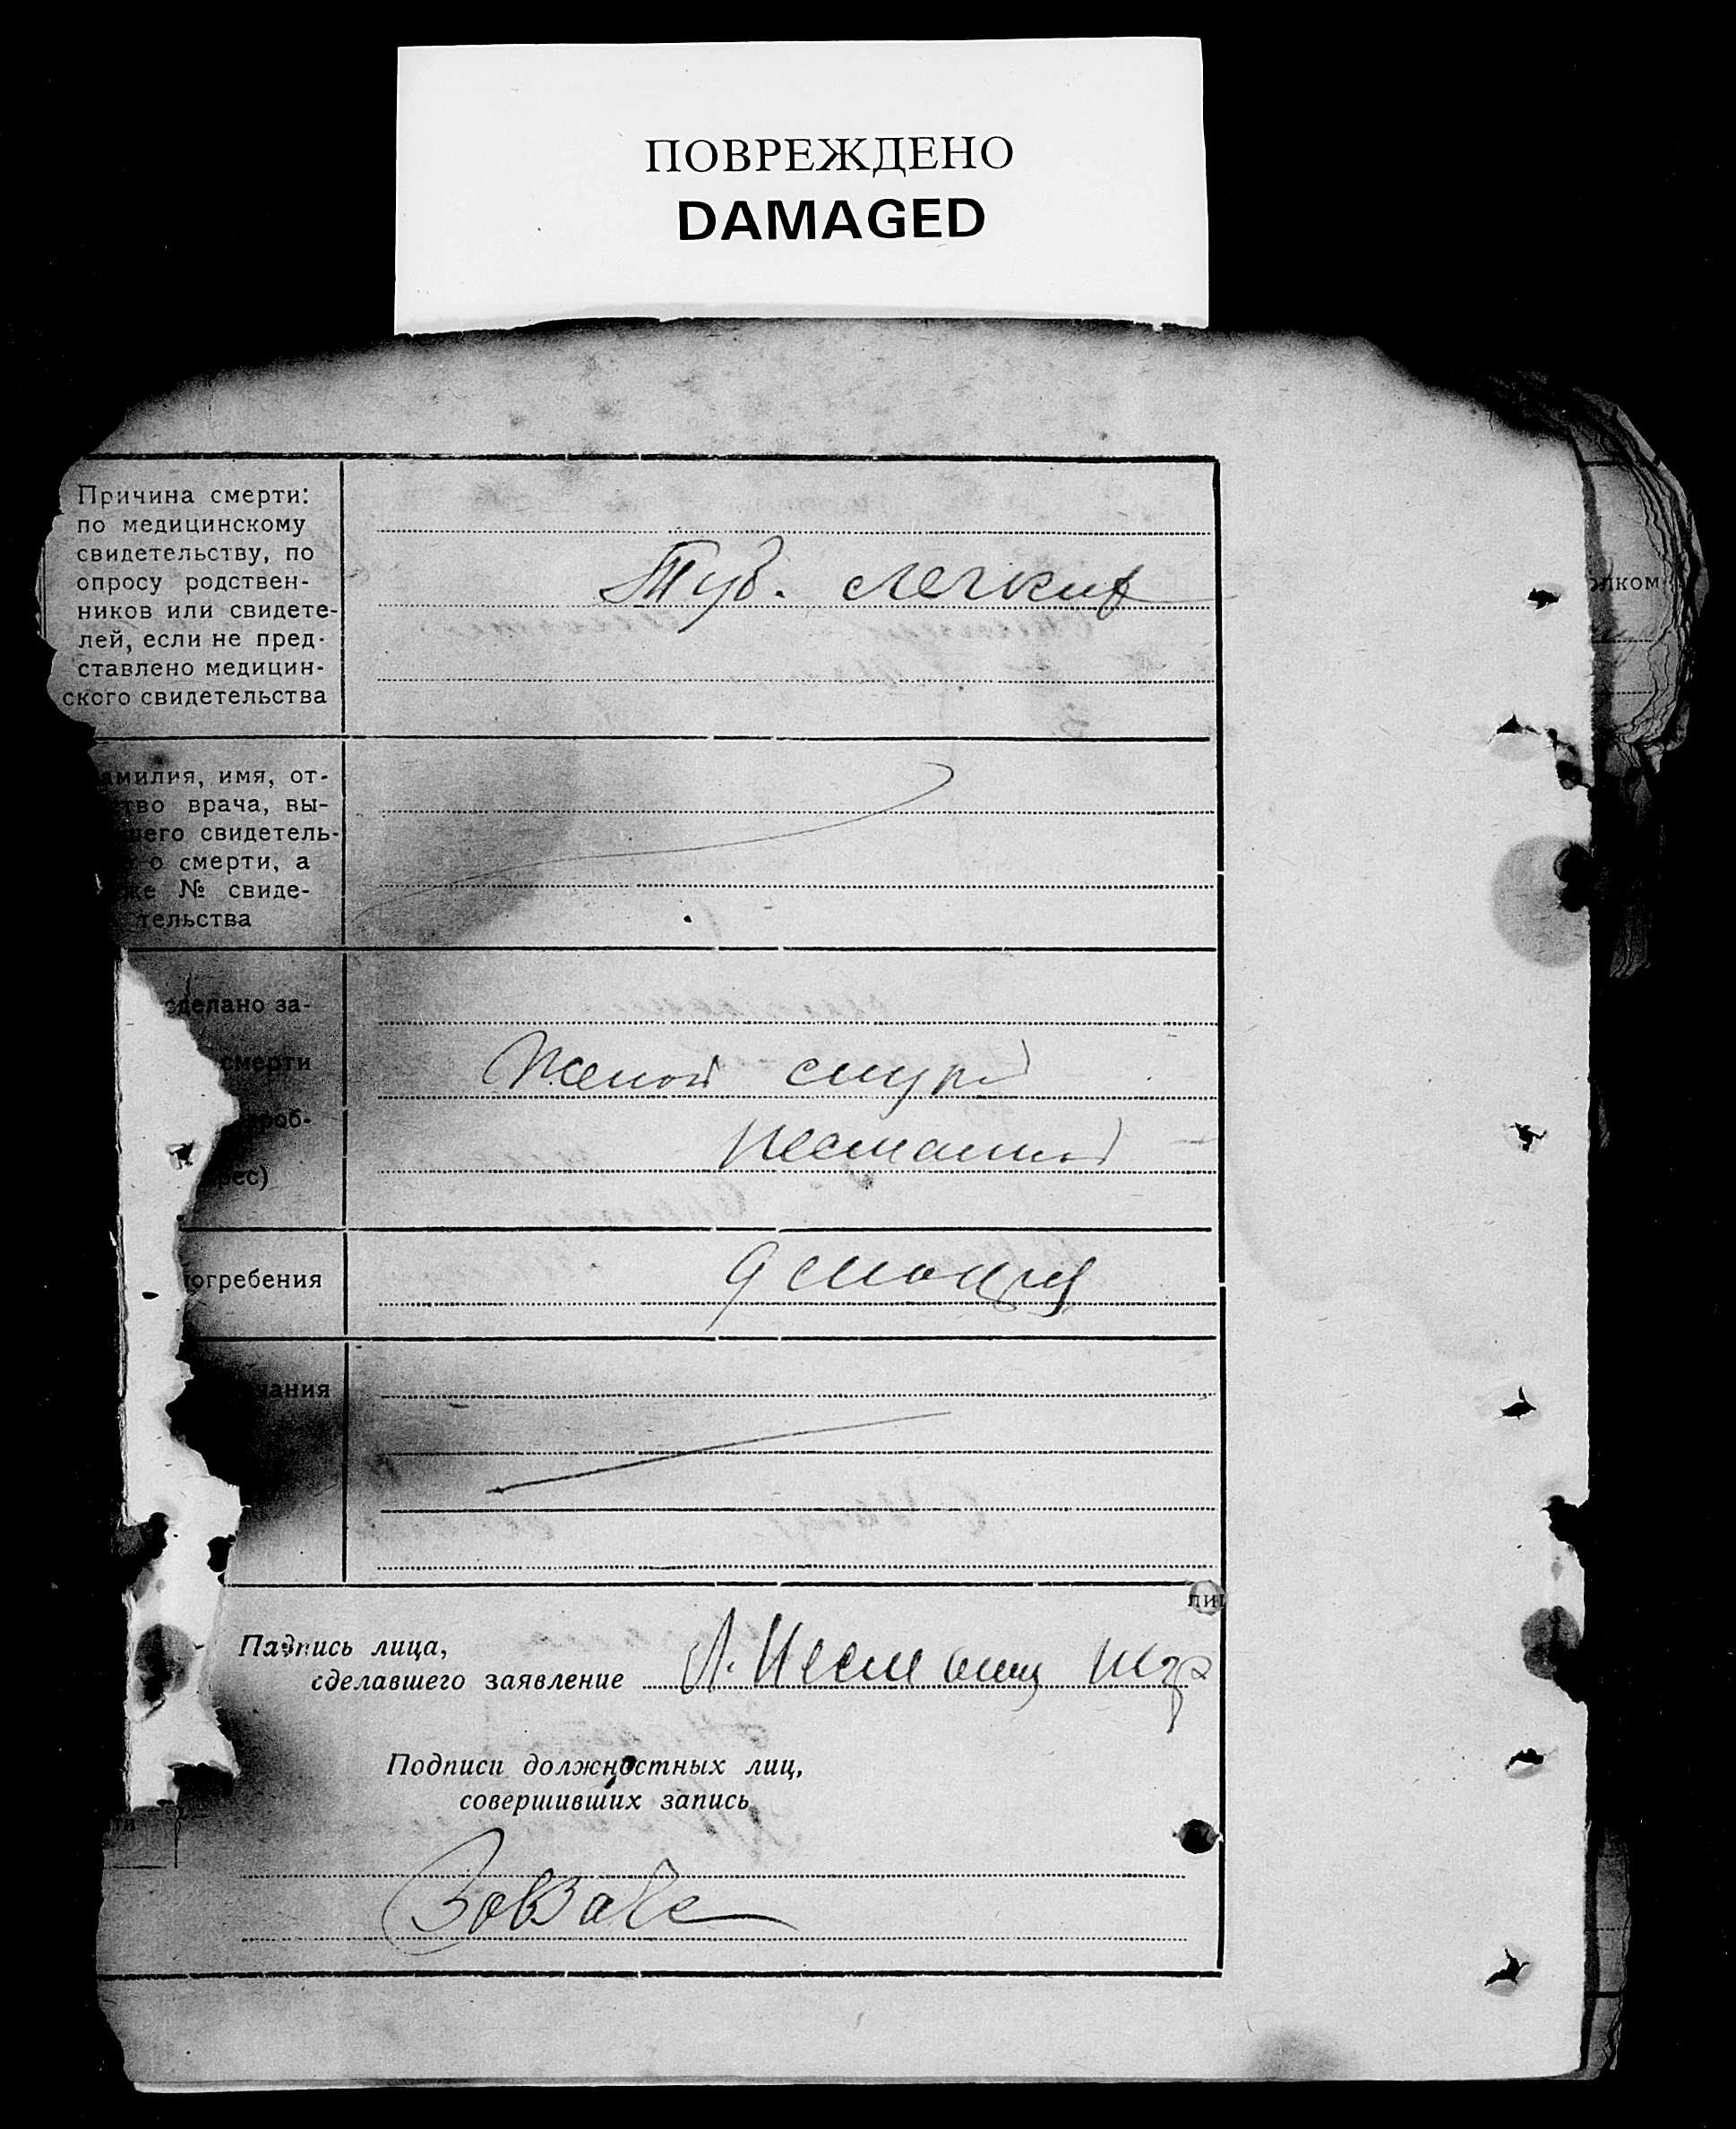 ПОВРЕЖДЕНО
DAMAGED
Причина смерти:
по медицинскому
свидетельству, по
опросу родствен-
ников или свидете-
лей, если не пред-
ставлено медицин-
ского свидетельства
Туб. легких
олком
амилия, имя, от-
тво врача, вы-
шего свидетель-
о смерти, а
же № свиде-
тельства
сделано за-
смерти
Женой
роб-
рес)
огребения
чания
лиц
Подпись лица,
сделавшего заявление
Подписи должностных лиц,
совершивших запись
ти